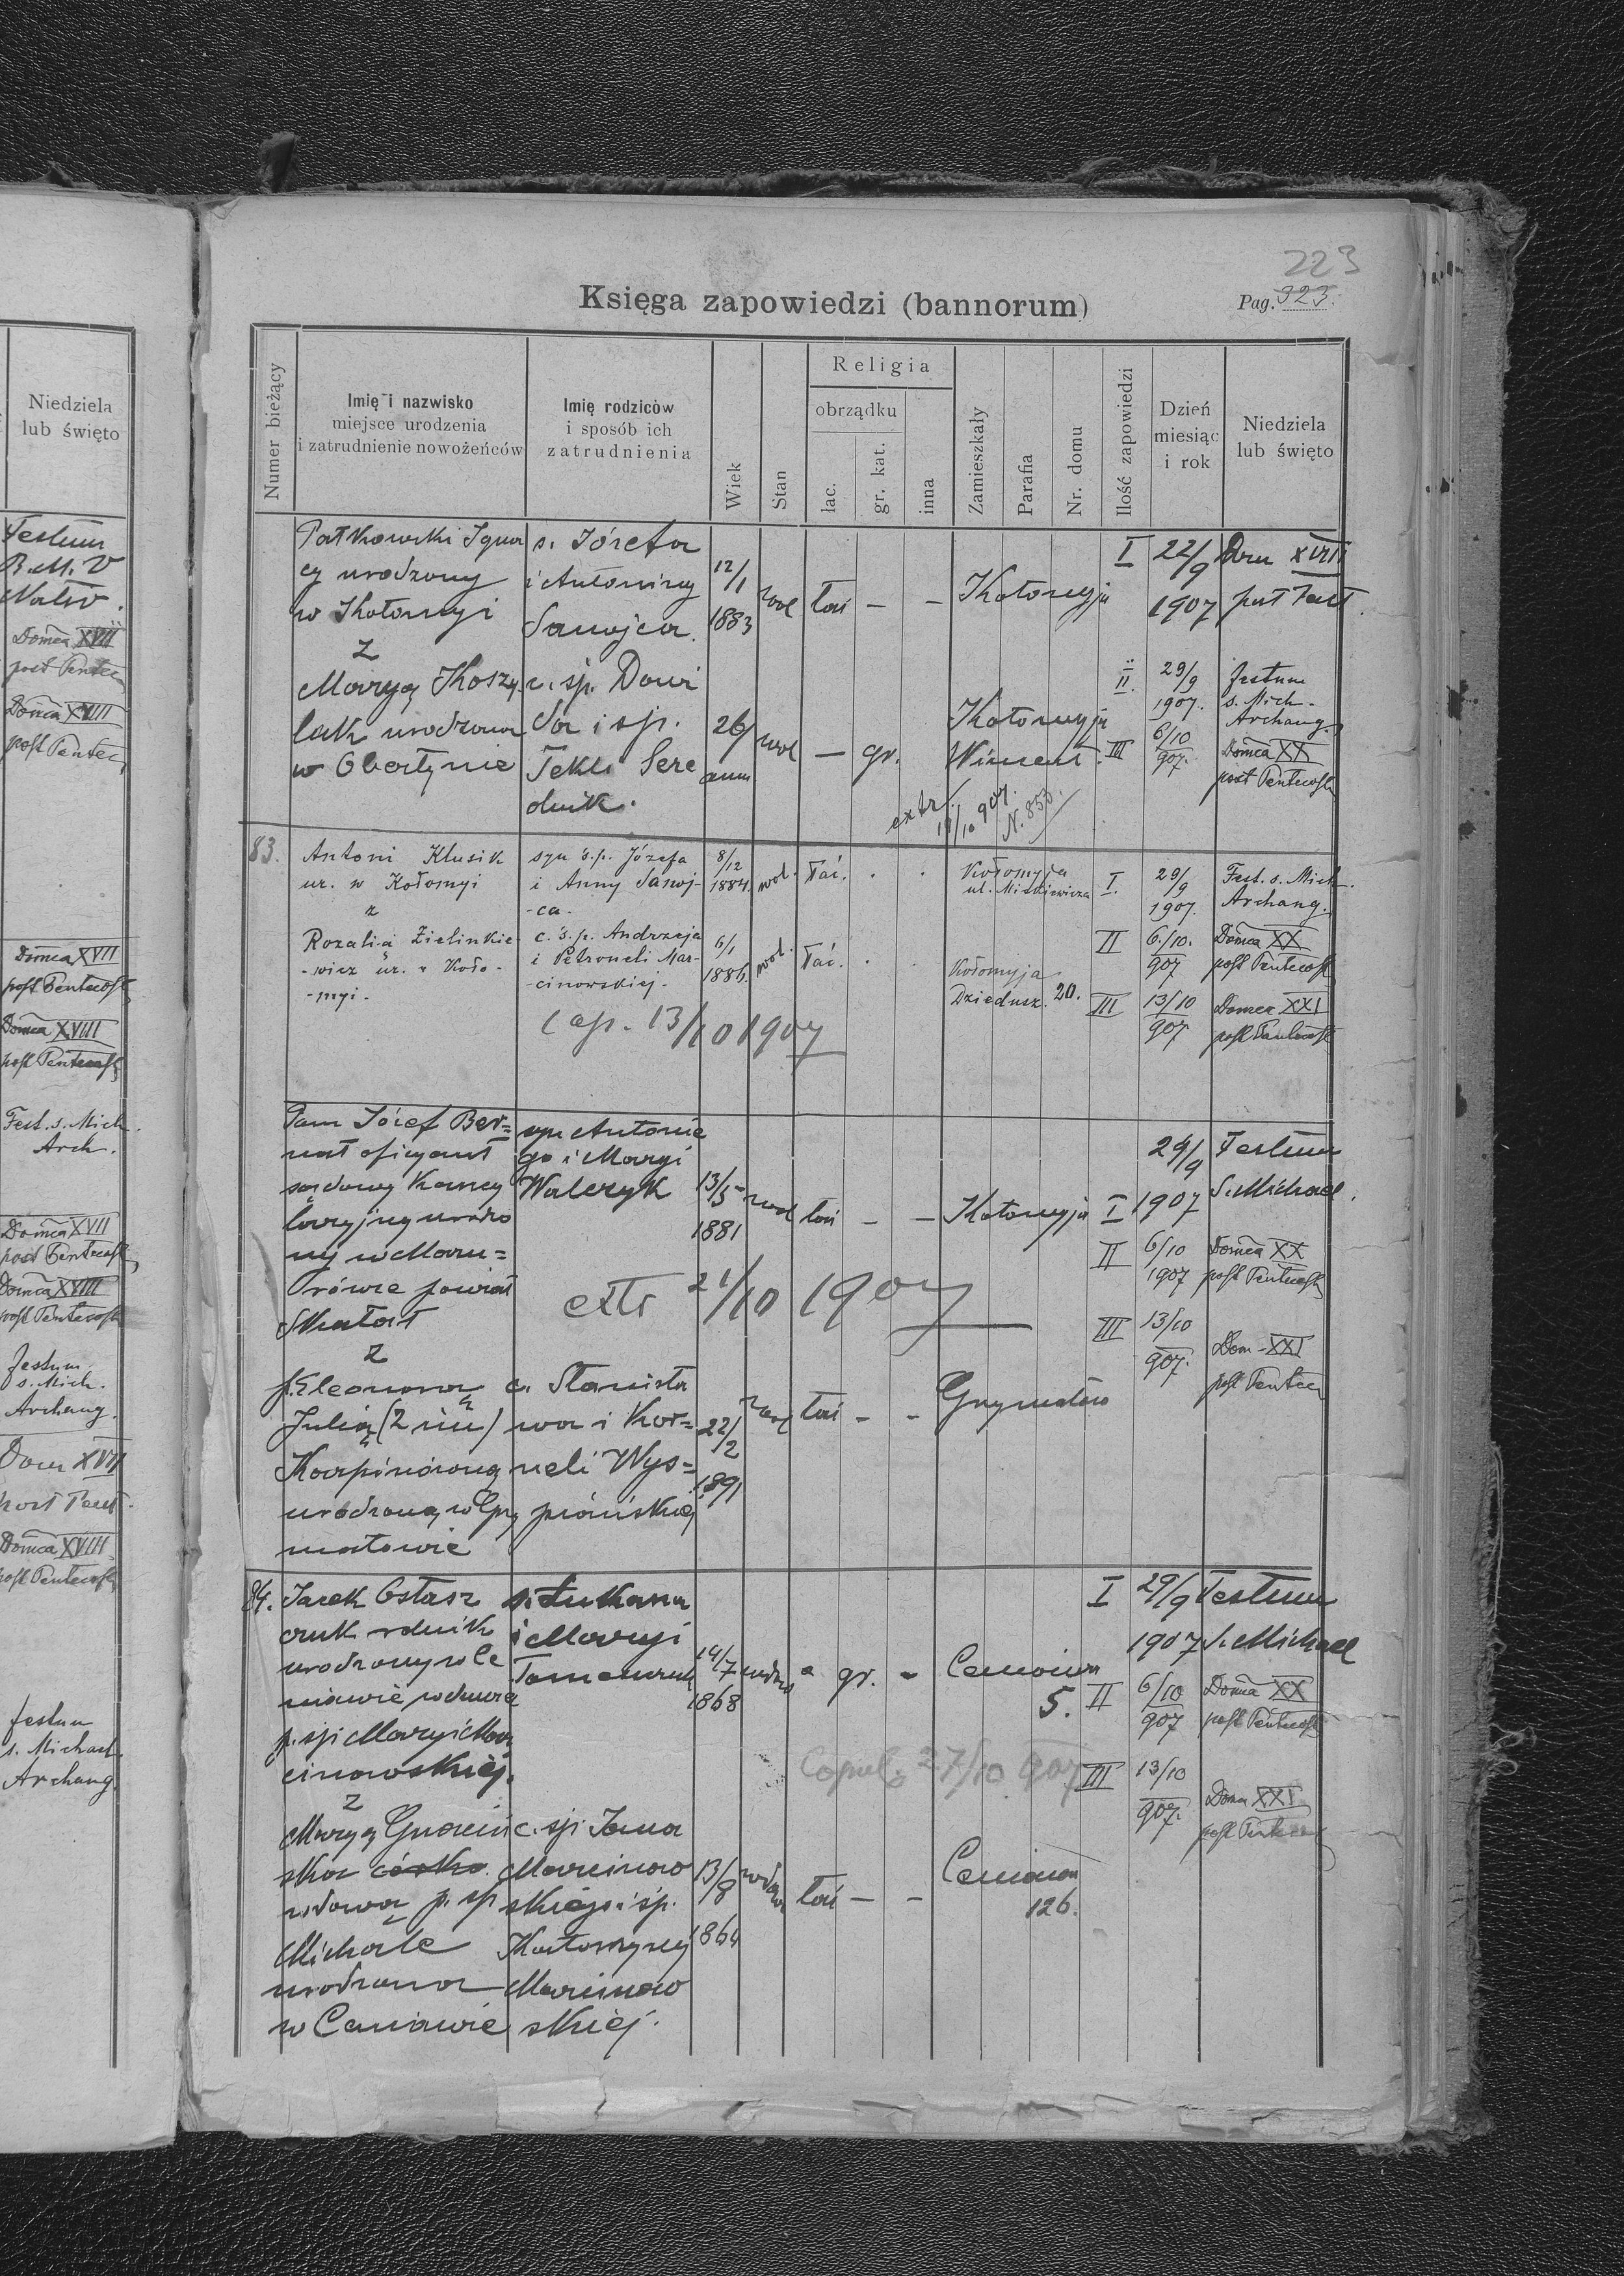 Niedziela
lub święto
Festum
B.M. V
Nativ.
Domca XVII
post Pentec
Domca XVIII
post Pentec
Domca XVII
post Pentecost
Domca XVIII
post Pentecost
Fest. s. Mich.
Arch.
Domca XVII
post Pentecost
Domca XVIII
post Pentecost
festum
s. Mich.
Archang.
Dom XVII
post Pent.
Domca XVIII
post Pentecost
festum
s. Michael
Archang.
223
Księga zapowiedzi (bannorum)
Pag. 323.
Numer bieżący
Imię i nazwisko
miejsce urodzenia
i zatrudnienie nowożeńców
Imię rodziców
i sposób ich
zatrudnienia
Wiek
Stan
Religia
obrządku
łac.
gr. kat.
inna
Zamieszkały
Parafia
Nr. domu
Ilość zapowiedzi
Dzień
miesiąc
i rok
Niedziela
lub święto
Pałkowski Igna s. Józefa
cy urodzony i Antoniny 12/1 wol łać — — Kołomyja I 22/9 Dom XVIII
w Kołomyi Sanojca. 1883 1907 post Pent.
z
Maryą Koszy c. śp. Dawi II. 29/9 festum
1907. s. Mich.
Archang.
lak urodzona da i śp. 26 wol — gr. Kołomyja
w Obertynie Tekli Sere annu Wincent. III 6/10 Domca XX
dnik. 907. post Pentecost
extr. 19/10 907. N. 853.
83. Antoni Klusik syn ś.p. Józefa 8/12 wol. łać. . . Kołomyja I. 29/9 Fest. s. Mich.
ur. w Kołomyi i Anny Sanoj- 1884. ul. Mickiewicza 1907. Archang.
z -ca.
Rozalią Zielinkie- c. ś.p. Andrzeja 6/1 wol. łać. . . II 6./10. Domca XX
-wicz ur. w Koło- i Petroneli Mar- 1886. Kołomyja 907 post Pentecost
-myi. -cinowskiej. Dziedusz. 20. III 13/10 Domca XXI
cop. 13/10 1907 907 post Pentecost
Pan Józef Ber= syn Antonie 29/9 Festum
nat oficyant go i Maryi
sądowy kancy Walczyk 13/5 wol łać — — Kołomyja I 1907 S. Michael.
laryjny urodzo 1881
ny w Mazu= II 6/10 Domca XX
rówce powiat 1907 post Pentecost
Skałat extr 21/10 1907 III 13/10
z 907. Dom. XXI
post Pentec
p. Eleonorą c. Stanisła
Julią (2 im) wa i Kor= 22/2 wol łać — — Grzymałów
Karpińską neli Wys= 1891
urodzoną w Grzy piańskiej
małowie
84. Jacek Ostasz s. Łukasza I 29/9 Festum
czuk rolnik i Maryi 1907 S. Michael
urodzony w Ce 14/7 gr. - Ceniawa
niawie wdowca 1868 5. II 6/10 Domca XX
p. śp. Maryi Mar 907 post Pentecost
cinowskiej. Copul. 27/10 907 III 13/10
z 907. Domca XXI
post Pentec
Maryą c. śp. Jana
ska córka Marcinow 13/8 łać — — Ceniawa
wdowa p. śp. skiego i śp. 126.
Michale Katarzyny 1864
urodzona Marcinow
w Ceniawie skiej.